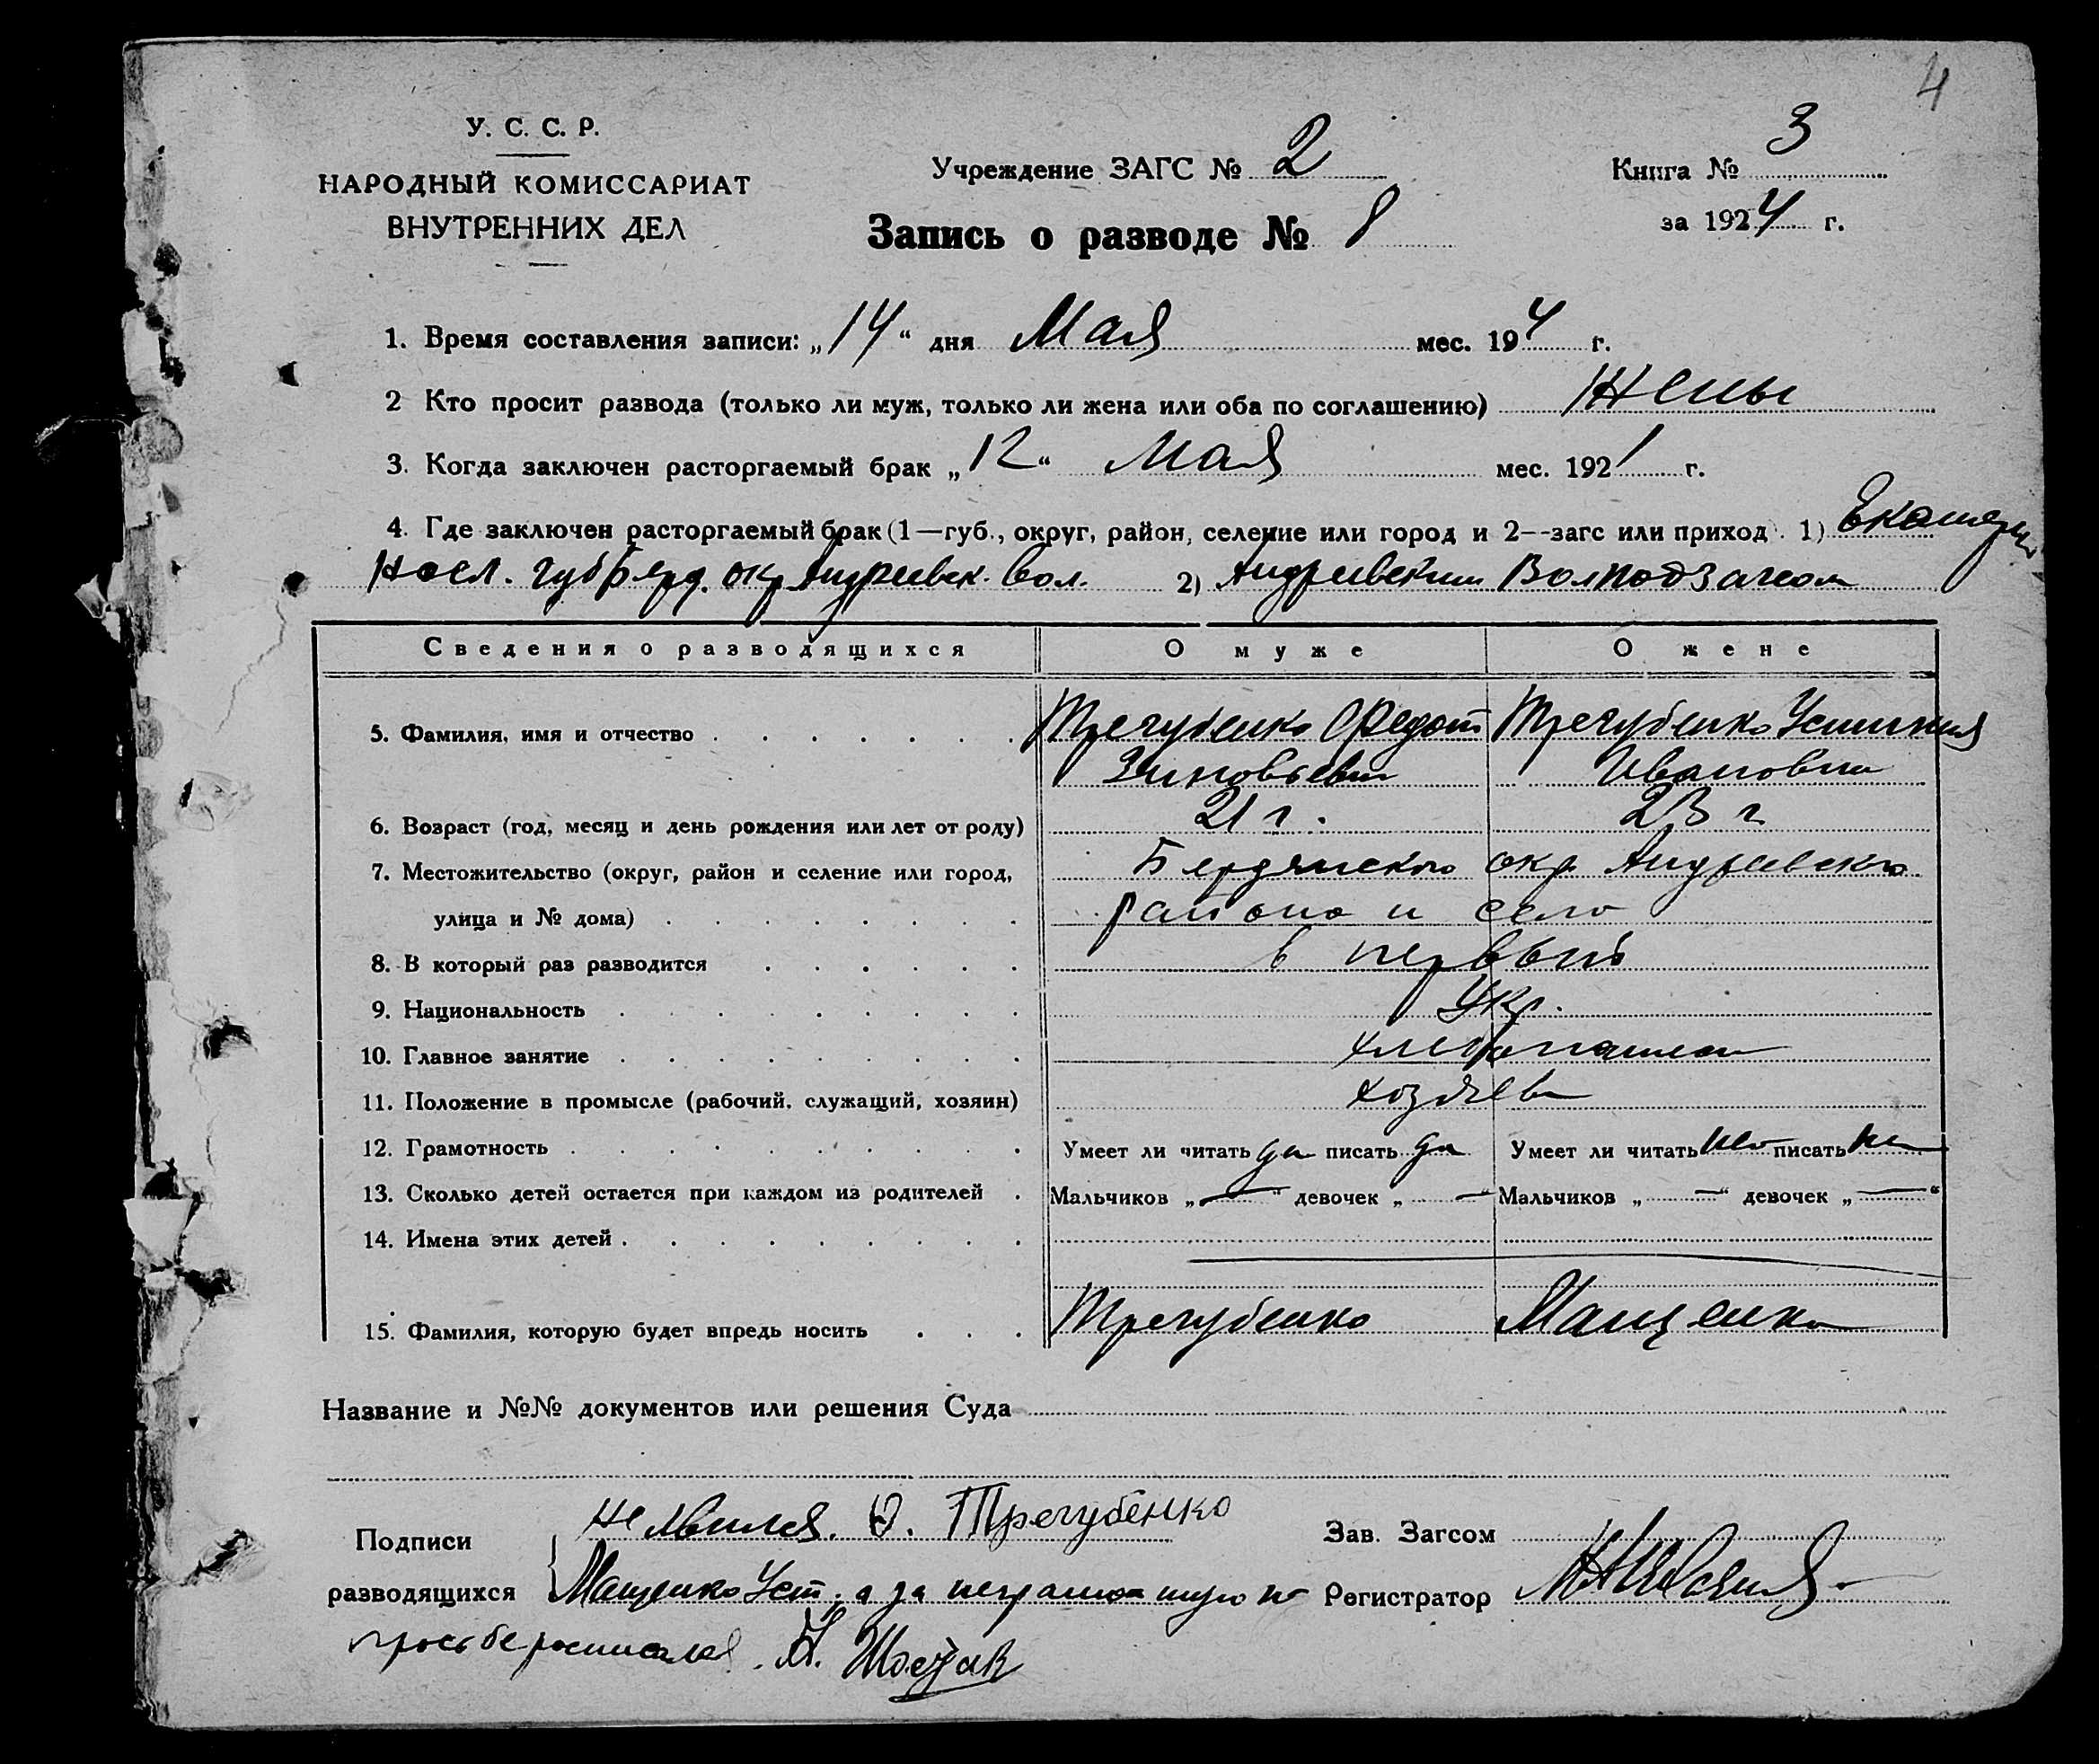 4
У. С. С. Р.
НАРОДНЫЙ КОМИССАРИАТ
ВНУТРЕННИХ ДЕЛ
Учреждение ЗАГС № 2
Книга № 3
за 1924 г.
Запись о разводе № 8
1. Время составления записи: „14“ дня Мая мес. 194 г.
2 Кто просит развода (только ли муж, только ли жена или оба по соглашению) Жены
3. Когда заключен расторгаемый брак „12“ Мая мес. 1921 г.
4. Где заключен расторгаемый брак (1—губ., округ, район, селение или город и 2--загс или приход). 1) Екатерин
губ Берд. окр Андреевск. вол. 2) Андреевским Волподзагсом
Сведения о разводящихся О муже О жене
5. Фамилия, имя и отчество Трегубенко Федот Трегубенко Устиния
Зиновьевич Ивановна
6. Возраст (год, месяц и день рождения или лет от роду) 21 г. 23 г
7. Местожительство (округ, район и селение или город, Бердянского окр Андреевского
улица и № дома) района и село
8. В который раз разводится в первый
9. Национальность Укр.
10. Главное занятие хлебопашество
11. Положение в промысле (рабочий, служащий, хозяин) хозяева
12. Грамотность Умеет ли читать да писать да Умеет ли читать не писать не
13. Сколько детей остается при каждом из родителей Мальчиков „—“ девочек „—“ Мальчиков „—“ девочек „—“
14. Имена этих детей
15. Фамилия, которую будет впредь носить Трегубенко Мащенко
Название и №№ документов или решения Суда
Подписи не явился. Ф. Трегубенко Зав. Загсом
разводящихся Мащенко Уст. а за неграмотную по Регистратор
просьбе росписался